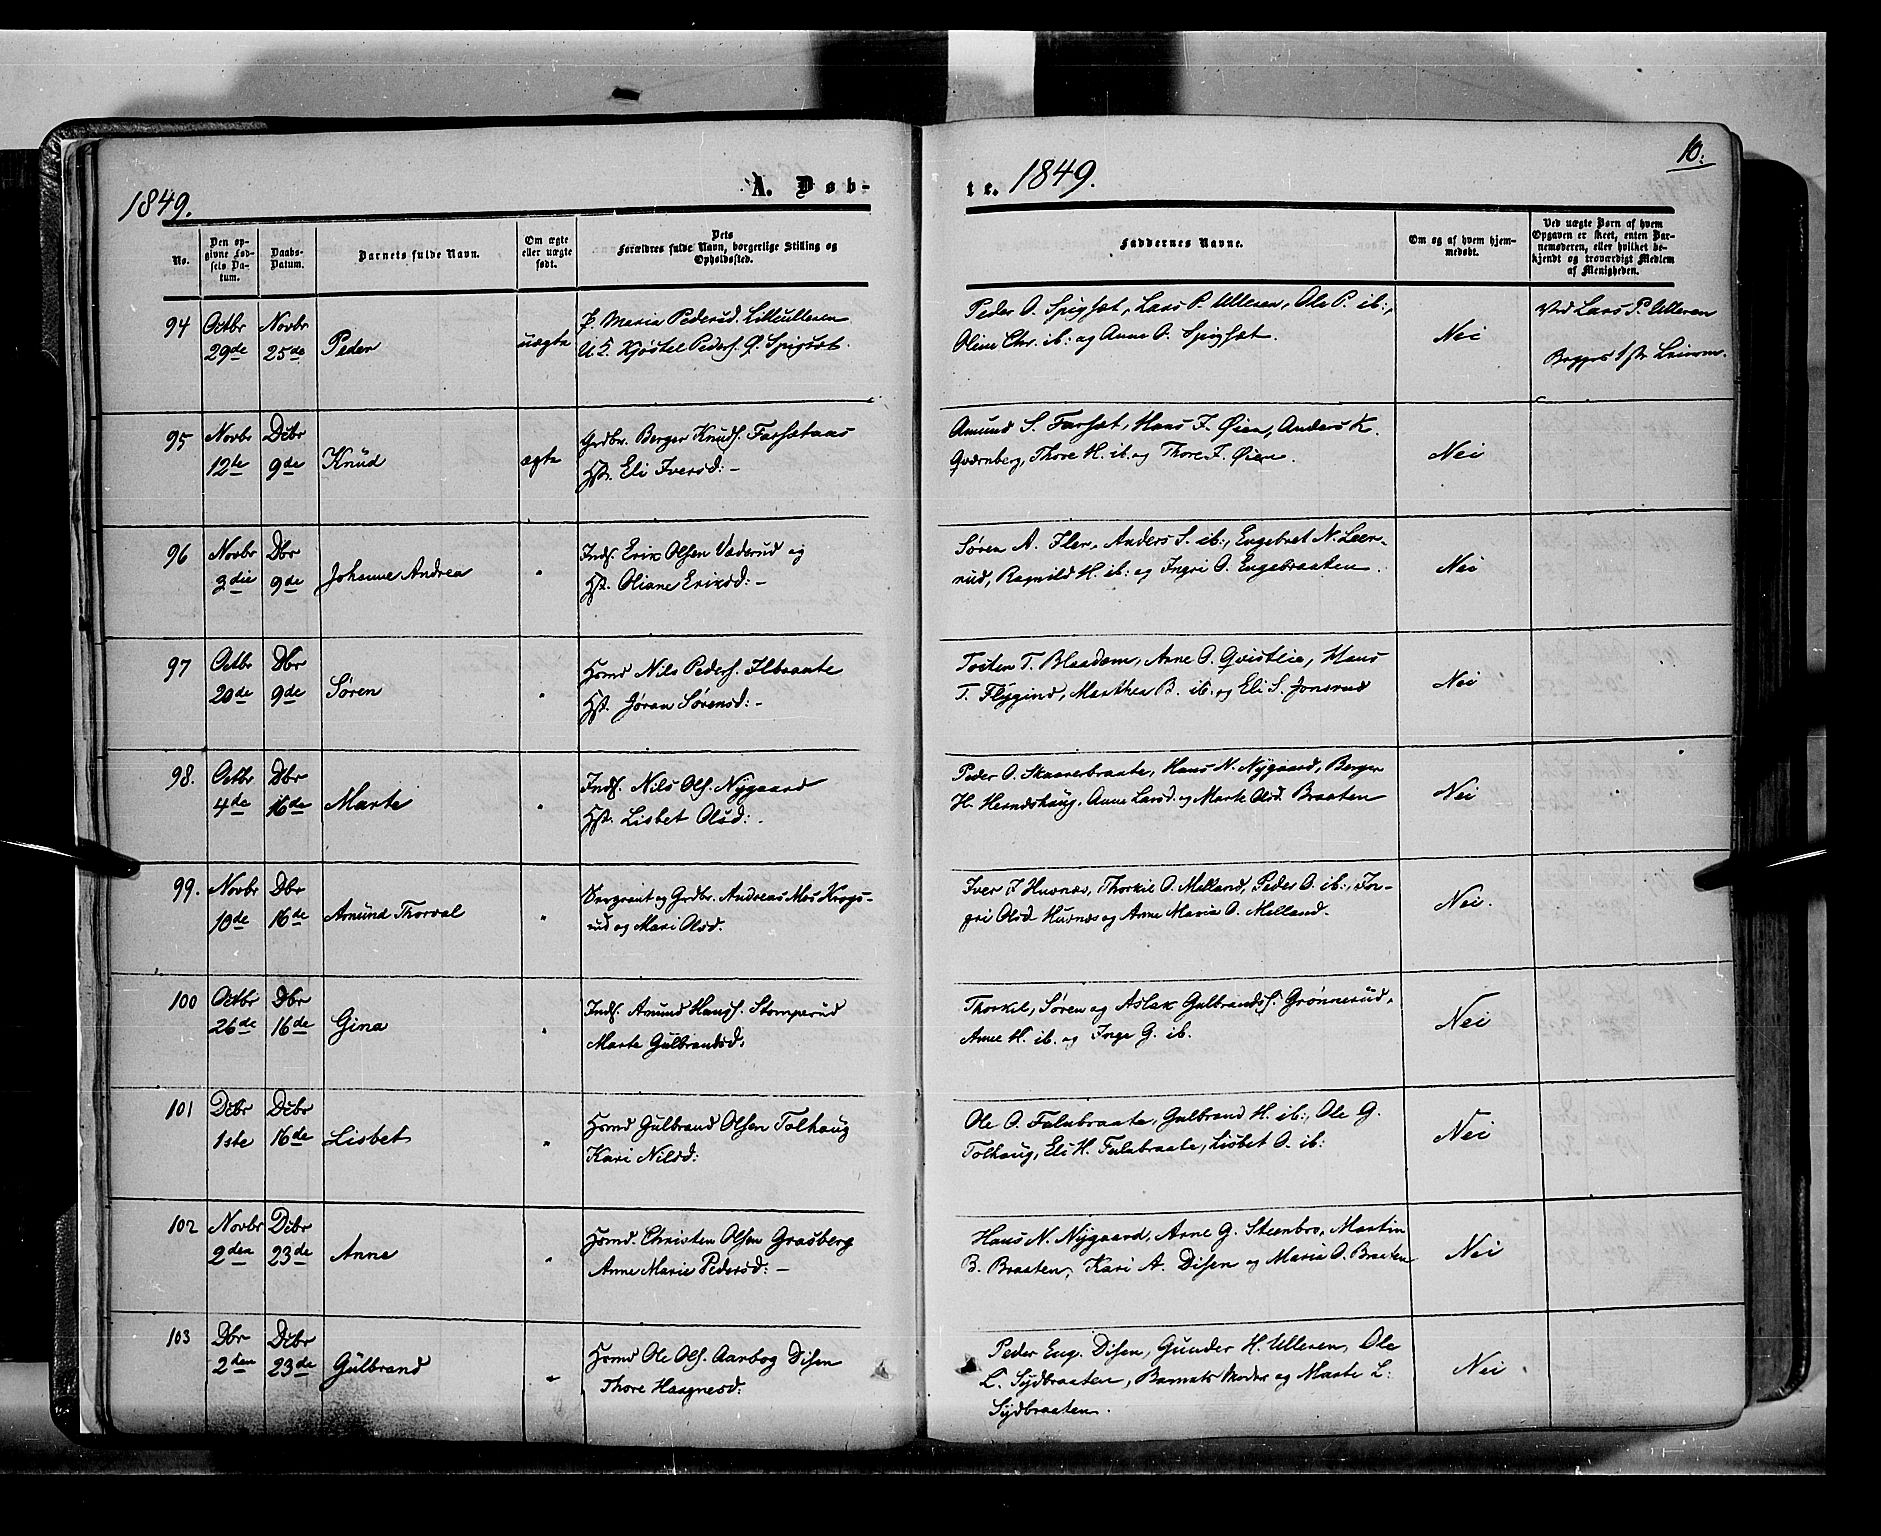 1849.
A. Døb-
te. 1849.
10.
No.
Den op-
givne Fød-
sels Da-
tum.
Daabs-
Datum.
Barnets fulde Navn.
Om ægte
eller uægte
født.
Dets
Forældres fulde Navn, borgerlige Stilling og
Opholdssted.
Faddernes Navne.
Om og af hvem hjem-
medøbt.
Ved uægte Børn af hvem
Opgaven er skeet, enten Bar-
nemoderen, eller hvilket be-
kjendt og troværdigt Medlem
af Menigheden.
94 Octbr Novbr
29de 25de Peder
uægte
P. Maria Pedersd. Lilleulleren
U.K. Kjøstel Peders. Ø. Spigset.
Peder O. Spigset, Lars P. Ulleren, Ole P. ib:,
Oline Chr. ib: og Anne O. Spigset.
Nei
Ved Lars P. Ulleren
Begges 1ste Leierm.
95 Novbr Dcbr
12te 9de Knud
ægte
Grdbr. Berger Knuds. Farsetaas
Hst. Eli Iversd: -
Amund S. Farset, Hans I. Øien, Anders K.
Qvernberg, Thore H. ib. og Thore I. Øien.
Nei
96 Novbr Dbr
3die 9de Johanne Andrea
"
Inds. Erik Olsen Væderud og
Hst. Oliane Eriksd: -
Søren A. Iler, Anders S. ib:, Engebret N. Leer-
rud, Ragnild H. ib: og Ingri O. Engebraaten.
Nei
97 Octbr Dbr
20de 9de Søren
"
Hsmd Nils Peders. Ilbraate
Hst. Jøran Sørensd: -
Tosten T. Blaadom, Arne O. Qvistlie, Hans
T. Flygind, Marthea B. ib. og Eli S. Jonsrud
Nei
98. Octbr Dbr
4de 16de Marte
"
Inds. Nils Ols. Nygaard
Hst. Lisbet Olsd: -
Peder O. Skaarerbraate, Hans N. Nygaard, Berger
H. Herndshaug, Anne Larsd. og Marte Olsd. Braaten
Nei
99. Novbr Dbr
10de 16de Amund Thorval
"
Sergeant og Grdbr. Andreas Mos Krogs-
rud og Mari Olsd.
Iver I Husnæs, Thorkil O. Melland, Peder O. ib., In-
gri Olsd. Husnæs og Anne Maria O. Melland.
Nei.
100 Octbr Dbr
26de 16de Gina
"
Inds. Amund Hans. Stomperud
Marte Gulbrandsd.
Thorkil, Søren og Aslak Gulbrands. Grønnerud,
Anne H. ib. og Inge G. ib.
Nei
101 Dcbr Dcbr
1ste 16de Lisbet
"
Hsmd Gulbrand Olsen Tolhaug
Kari Nilsd:
Ole O. Falubraate, Gulbrand H. ib:, Ole G.
Tolhaug, Eli H. Falubraate, Lisbet O. ib:
Nei
102 Novbr Dcbr
2den 23de Anne
"
Hsmd. Christen Olsen Grasberg
Anne Marie Pedersd: -
Hans N. Nygaard, Arne G. Steenbro, Martin
B. Braaten, Kari A. Disen og Maria O. Braaten
Nei
103 Dbr Dcbr
2den 23de Gulbrand
"
Hsmd Ole Ols. Aarbog Disen
Thore Haagnesd:
Peder Eng. Disen, Gunder H. Ulleren, Ole
L. Sydbraaten, Barnets Moder og Marte L:
Sydbraaten.
Nei